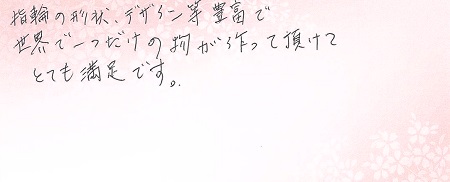 指輪の形状、デザイン等豊富で
世界で一つだけの物が作って頂けて
とても満足です。